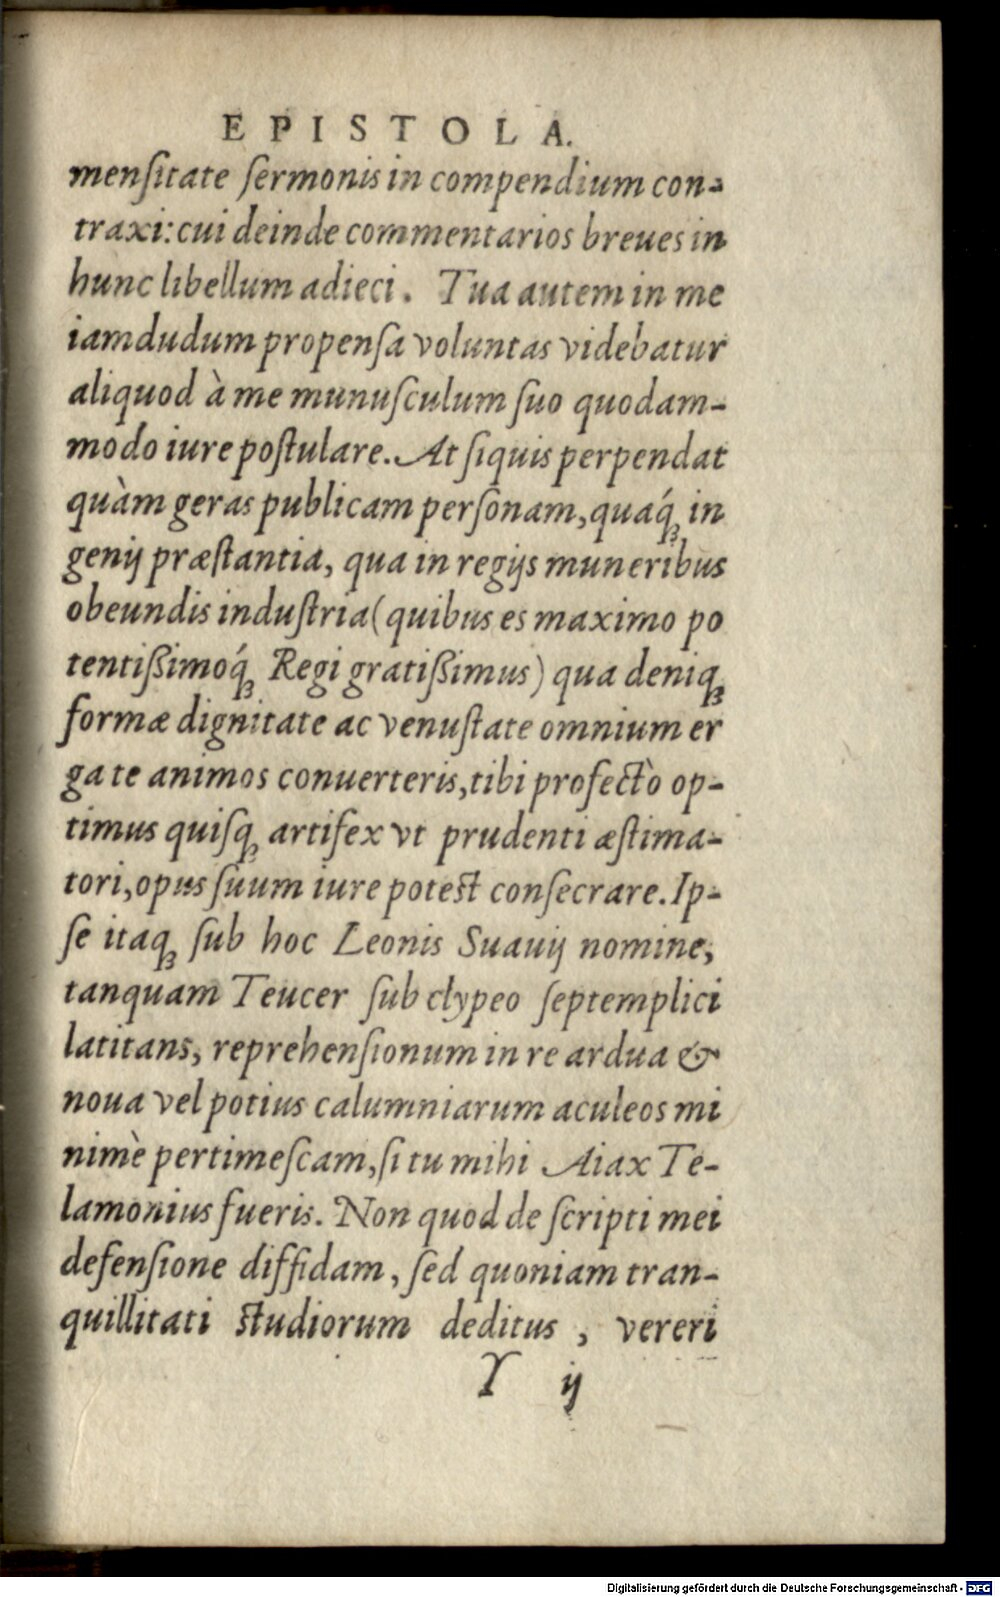 EPISTOLA.
menſitate ſermonis in compendium con-
traxi: cui deinde commentarios breues in
hunc libellum adieci. Tua autem in me
iamdudum propenſa voluntas videbatur
aliquod à me munuſculum ſuo quodam-
modo iure poſtulare. At ſiquis perpendat
quàm geras publicam perſonam, quaq́ꝫ in
genij præſtantia, qua in regijs muneribus
obeundis induſtria (quibus es maximo po
tentiſſimoq́ꝫ Regi gratiſſimus) qua deniqꝫ
formæ dignitate ac venuſtate omnium er
ga te animos conuerteris, tibi profectò op-
timus quiſqꝫ artifex vt prudenti æſtima-
tori, opus ſuum iure poteſt conſecrare. Ip-
ſe itaqꝫ ſub hoc Leonis Suauij nomine,
tanquam Teucer ſub clypeo ſeptemplici
latitans, reprehenſionum in re ardua &
noua vel potius calumniarum aculeos mi
nimè pertimeſcam, ſi tu mihi Aiax Te-
lamonius fueris. Non quod de ſcripti mei
defenſione diffidam, ſed quoniam tran-
quillitati ſtudiorum deditus, vereri
Y ij
Digitalisierung gefördert durch die Deutsche Forschungsgemeinschaft - DFG